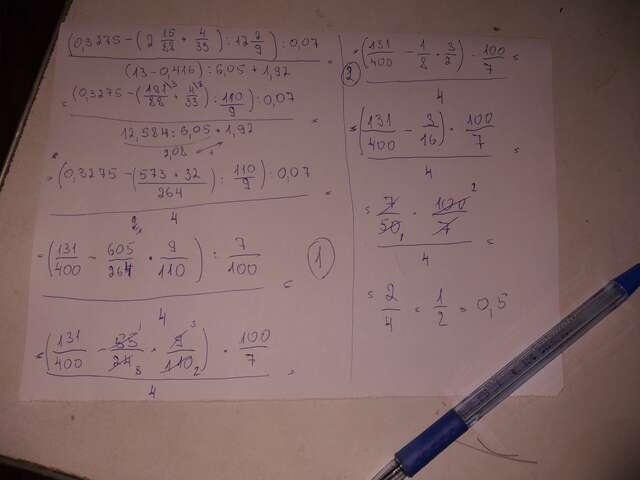 (0,3275-(2 15/88 + 4/33) : 12 2/9) : 0,07
(13-0,416) : 6,05 + 1,92 =
= (0,3275-(191/88 + 4/33) : 110/9) : 0,07
12,584 : 6,05 + 1,92 =
2,08
= (0,3275-(573+32/264) : 110/9) : 0,07
4 =
= (131/400 - 605/264 · 9/110) : 7/100
4 =
= (131/400 - 55/24 · 9/110) · 100/7
4 =
1
2
= (131/400 - 1/8 · 3/2) · 100/7
4 =
= (131/400 - 3/16) · 100/7
4 =
= 7/50 · 100/7
4 =
= 2/4 = 1/2 = 0,5